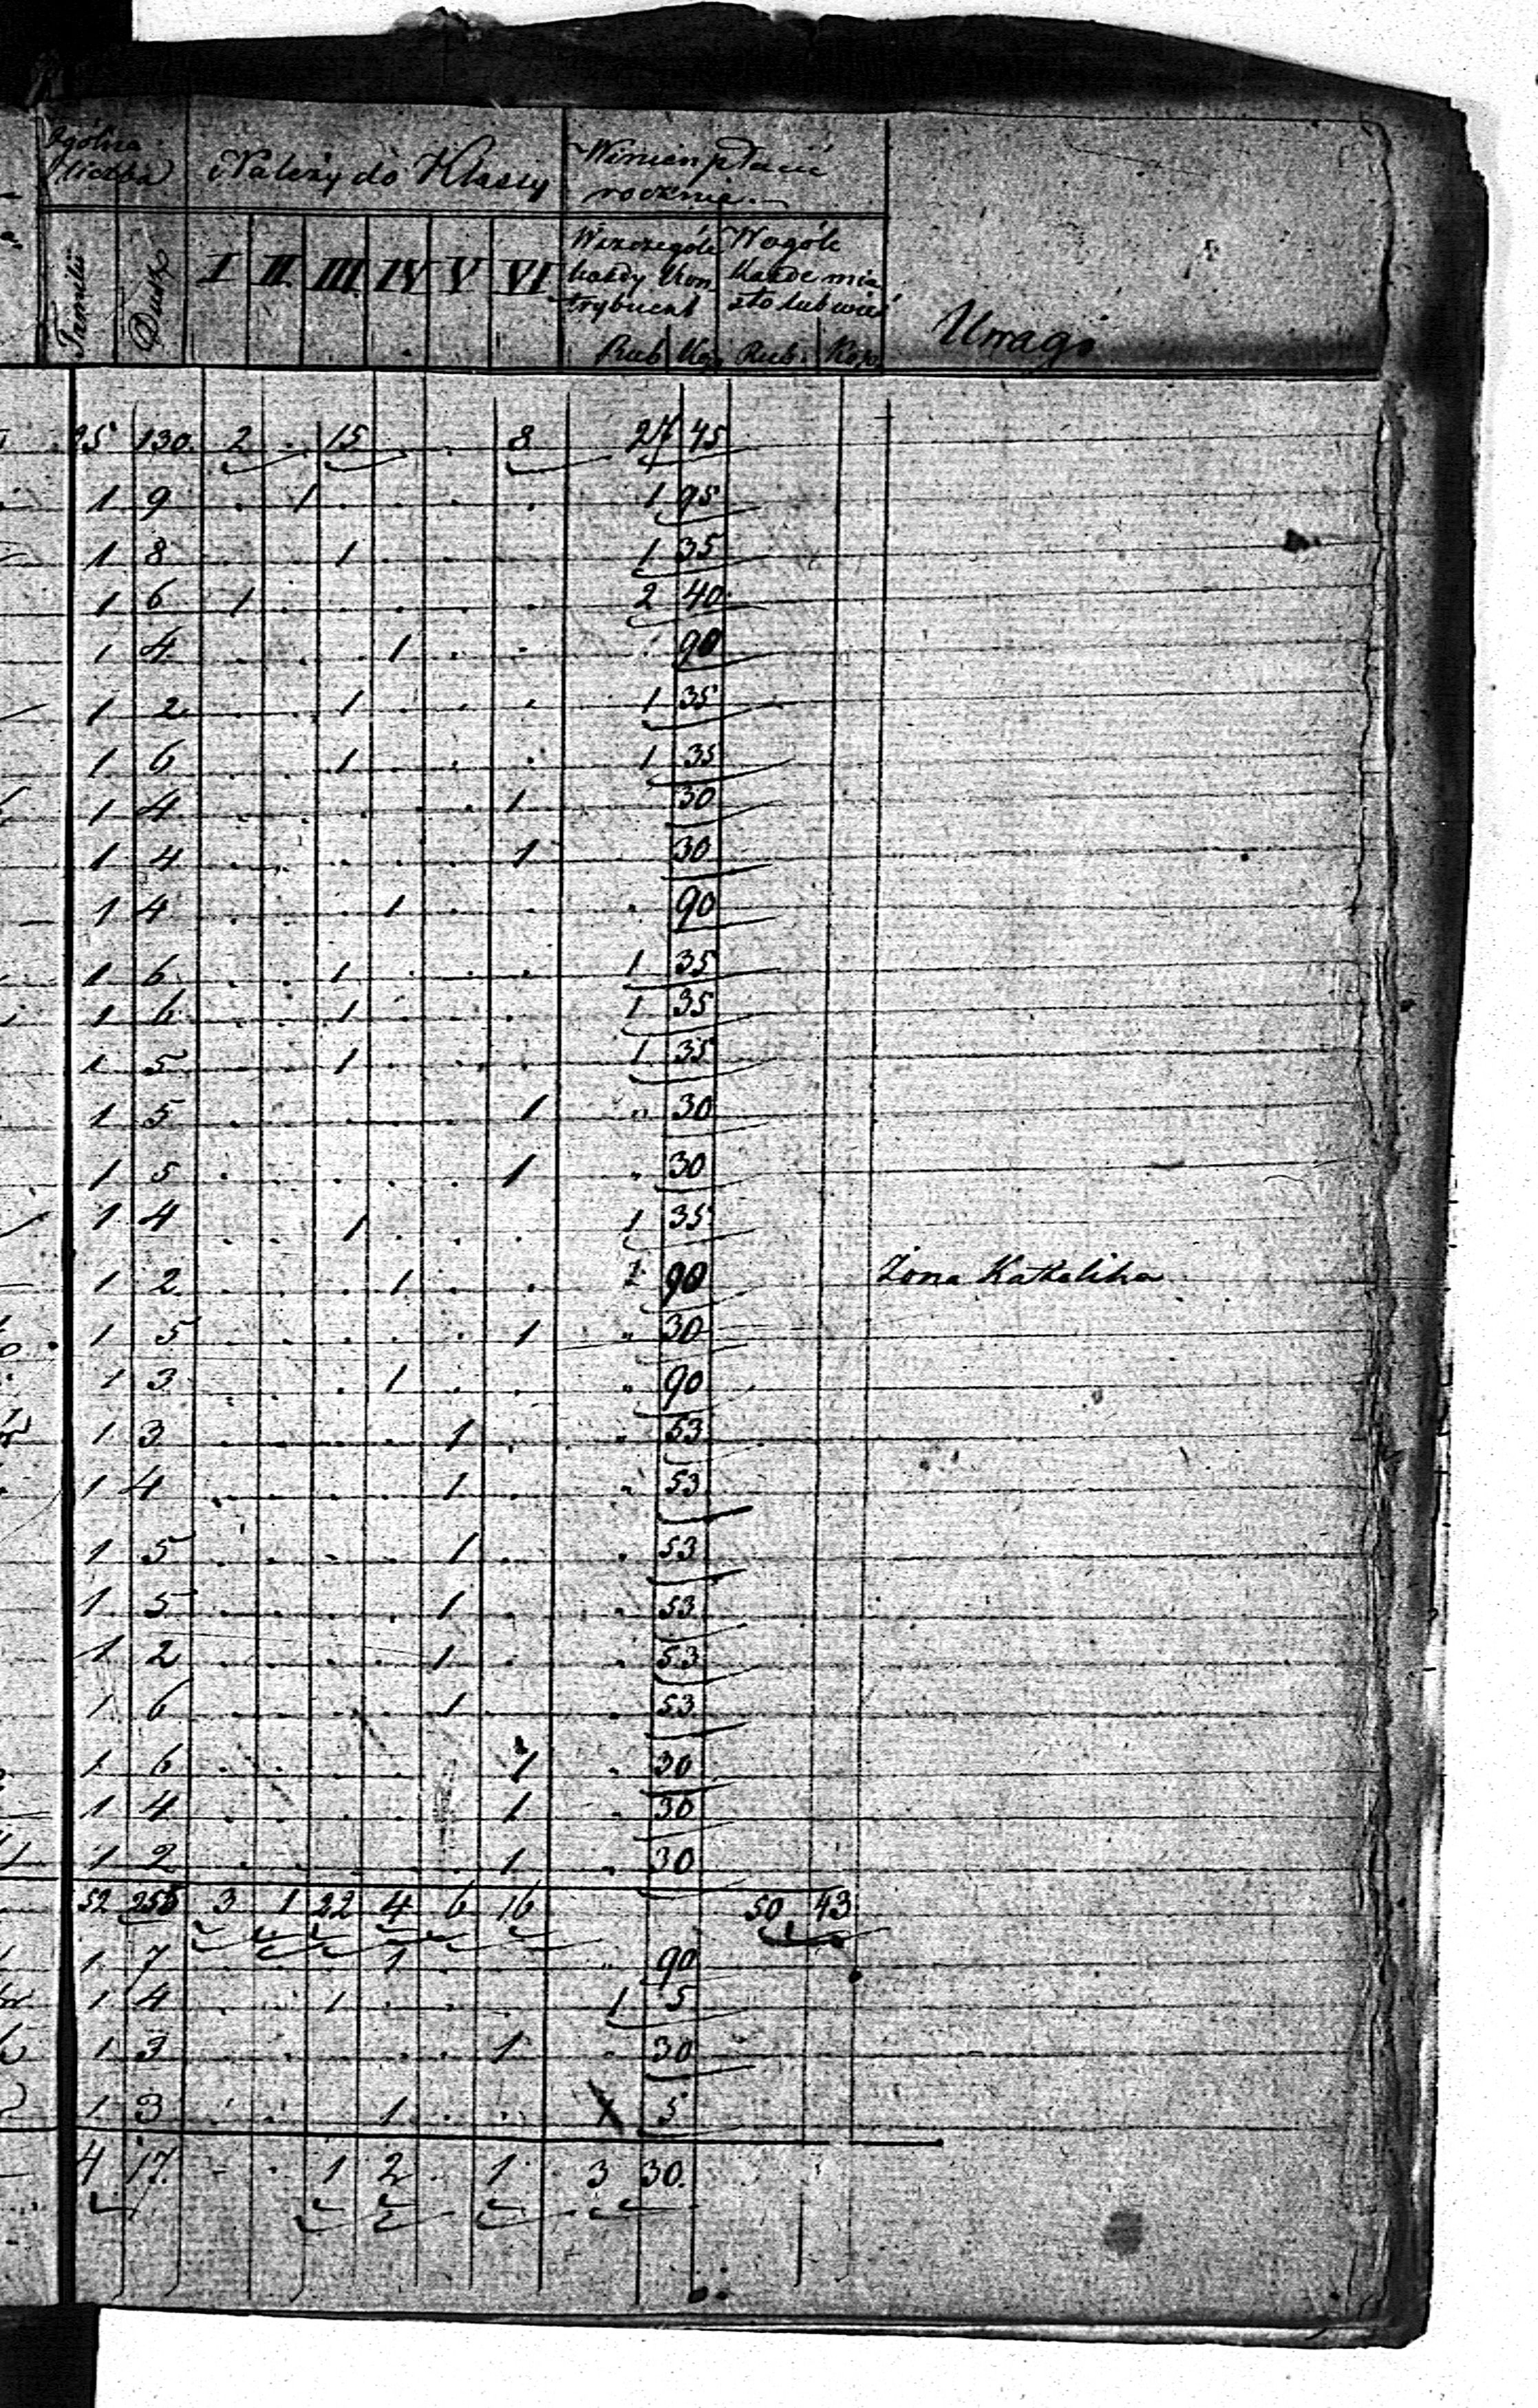 Ogólna liczba | Należy do Klassy | Winien płacić rocznie | Uwagi
Familii | Dusz | I | II | III | IV | V | VI | W szczególe każdy Kontrybuent Rub. Kop. | W ogóle każde miasto lub wieś Rub. Kop.
25 130 2 . 15 . . 8 27 45
1 9 . 1 . . . . 1 95
1 8 . . 1 . . . 1 35
1 6 1 . . . . . 2 40
1 4 . . . 1 . . . 90
1 2 . . 1 . . . 1 35
1 6 . . 1 . . . 1 35
1 4 . . . . . 1 30
1 4 . . . . . 1 30
1 4 . . . 1 . . . 90
1 6 . . 1 . . . 1 35
1 6 . . 1 . . . 1 35
1 5 . . 1 . . . 1 35
1 5 . . . . . 1 " 30
1 5 . . . . . 1 " 30
1 4 . . 1 . . . 1 35
1 2 . . . 1 . . 90 Żona Katholika
1 5 . . . . . 1 " 30
1 3 . . . 1 . . " 90
1 3 . . . . 1 . . 53
1 4 . . . . 1 . " 53
1 5 . . . . 1 . . 53
1 5 . . . . 1 . . 53
1 2 . . . . 1 . . 53
1 6 . . . . 1 . . 53
1 6 . . . . . 1 . 30
1 4 . . . . . 1 . 30
1 2 . . . . . 1 . 30
52 255 3 1 22 4 6 16 50 43
1 7 . . . 1 . . " 90
1 4 . . 1 . . . 1 5
1 3 . . . . . 1 . 30
1 3 . . . 1 . . 5
4 17 . . 1 2 . 1 3 30